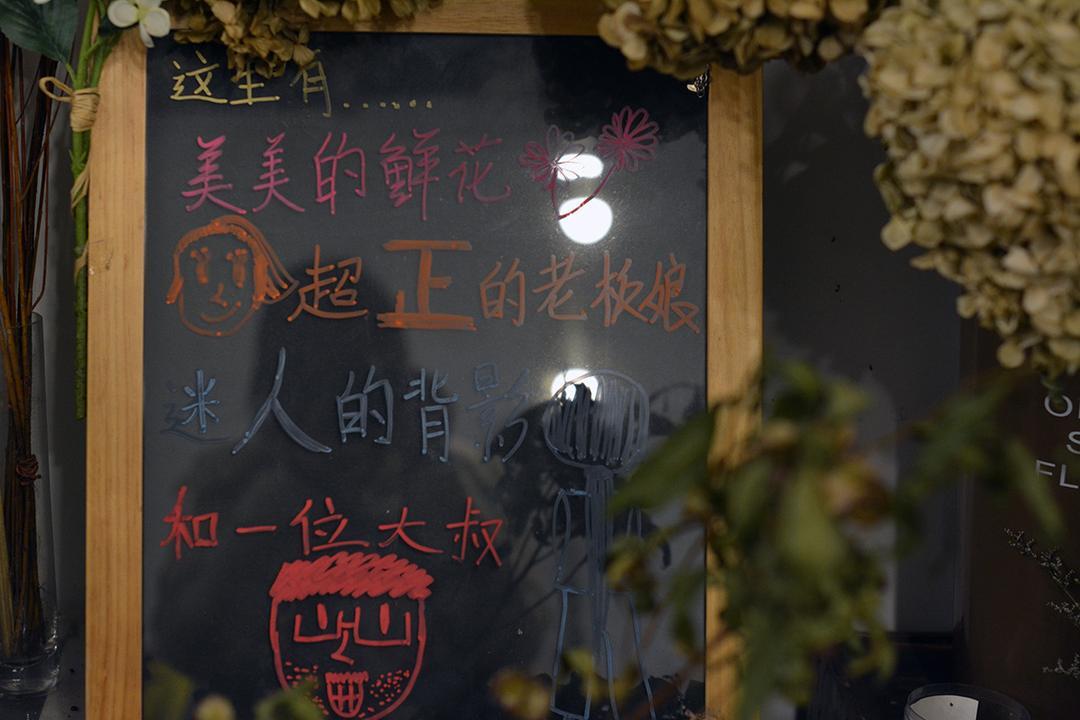 这里有......
美美的鲜花
超正的老板娘
迷人的背影
和一位大叔